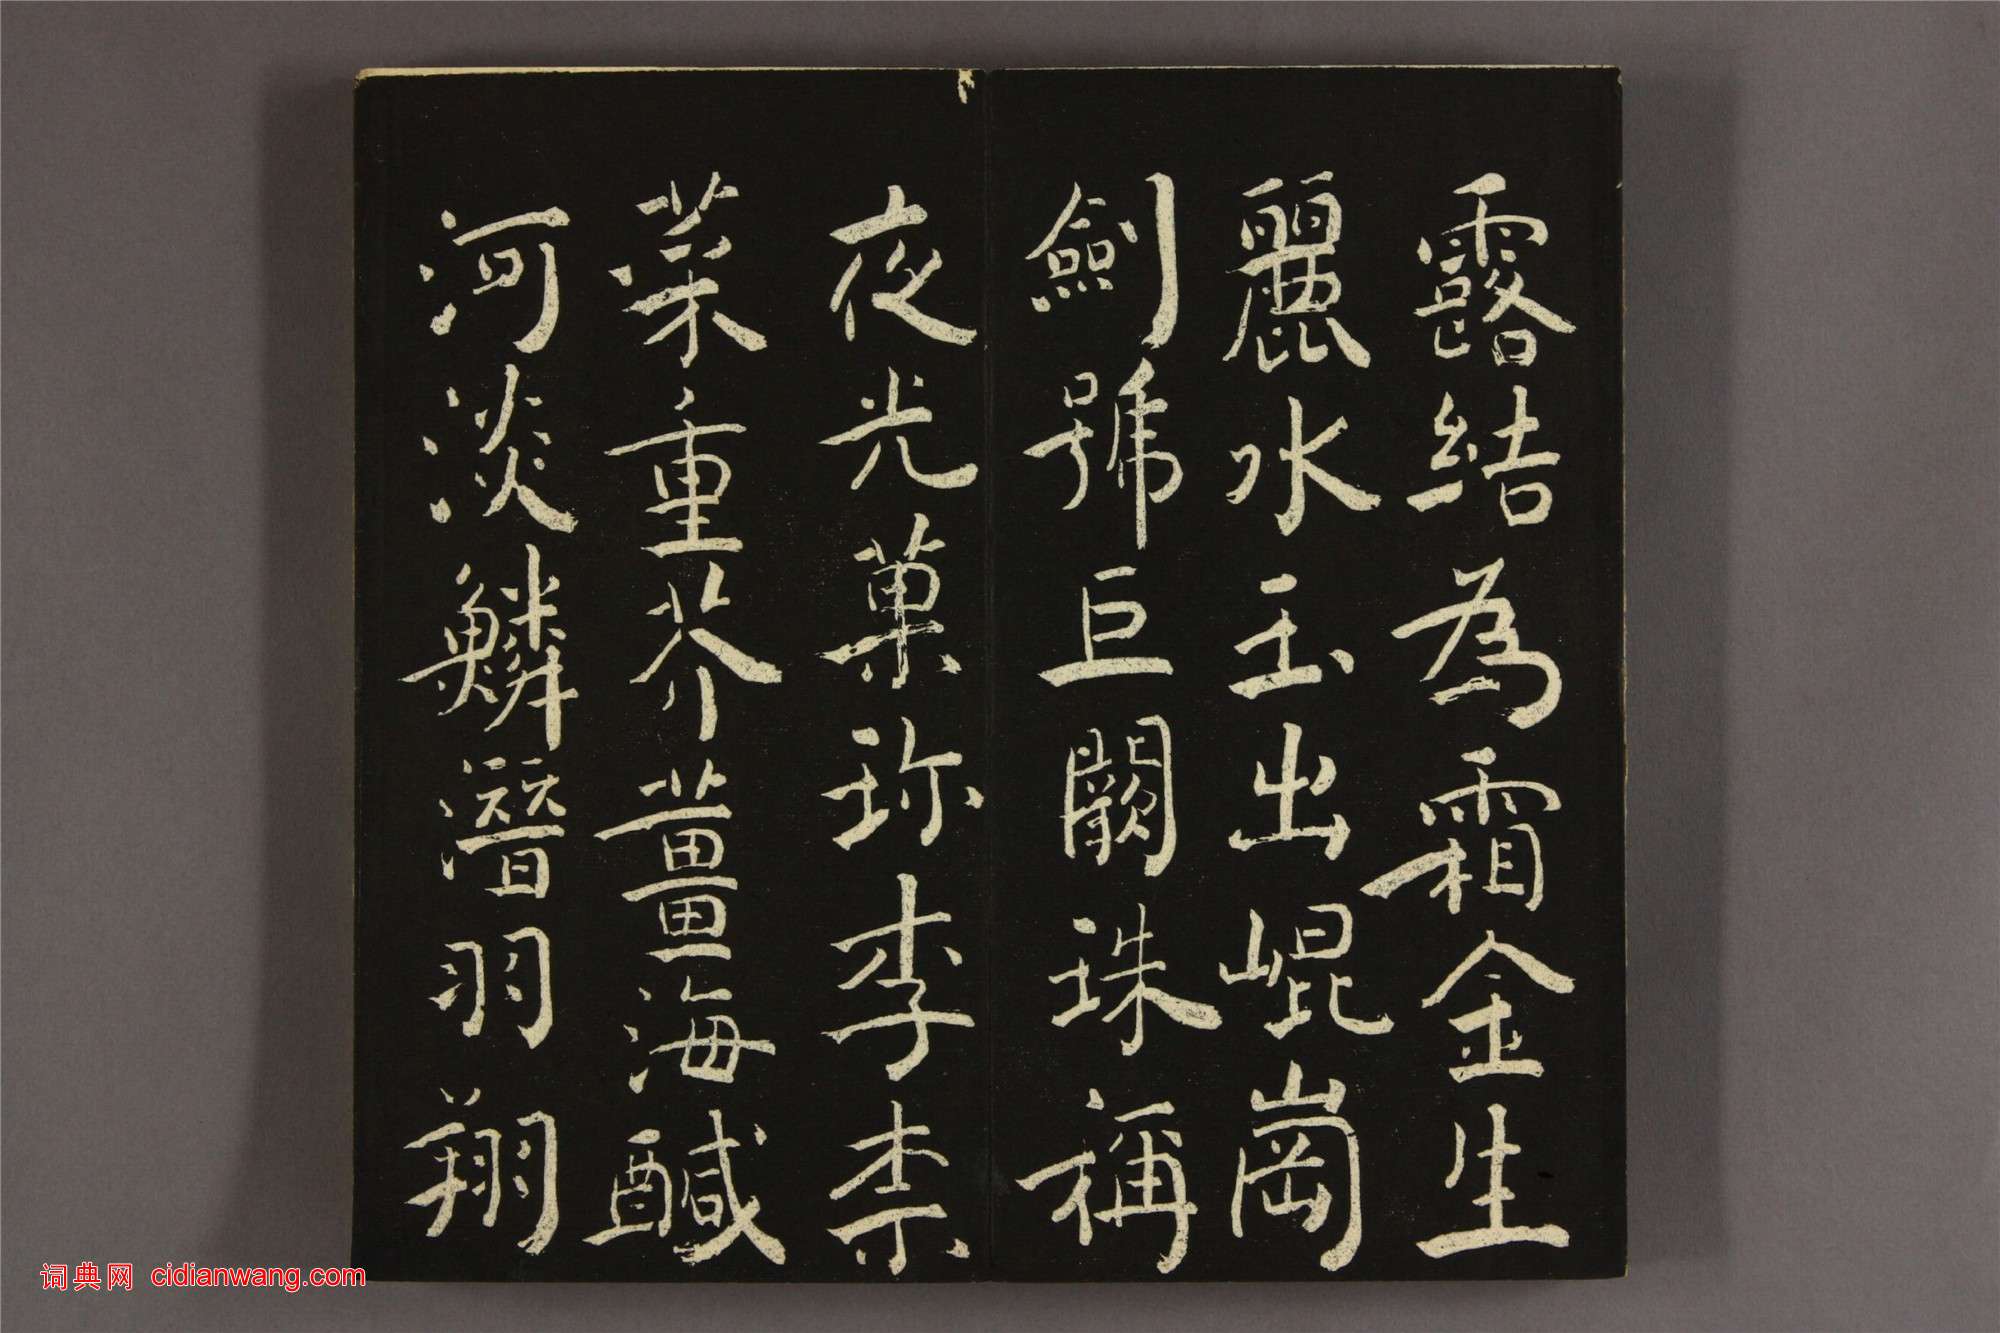 露結為霜金生
麗水玉出崐崗
劍號巨闕珠稱
夜光菓珎李柰
菜重芥薑海醎
河淡鱗潛羽翔
词典网 cidianwang.com